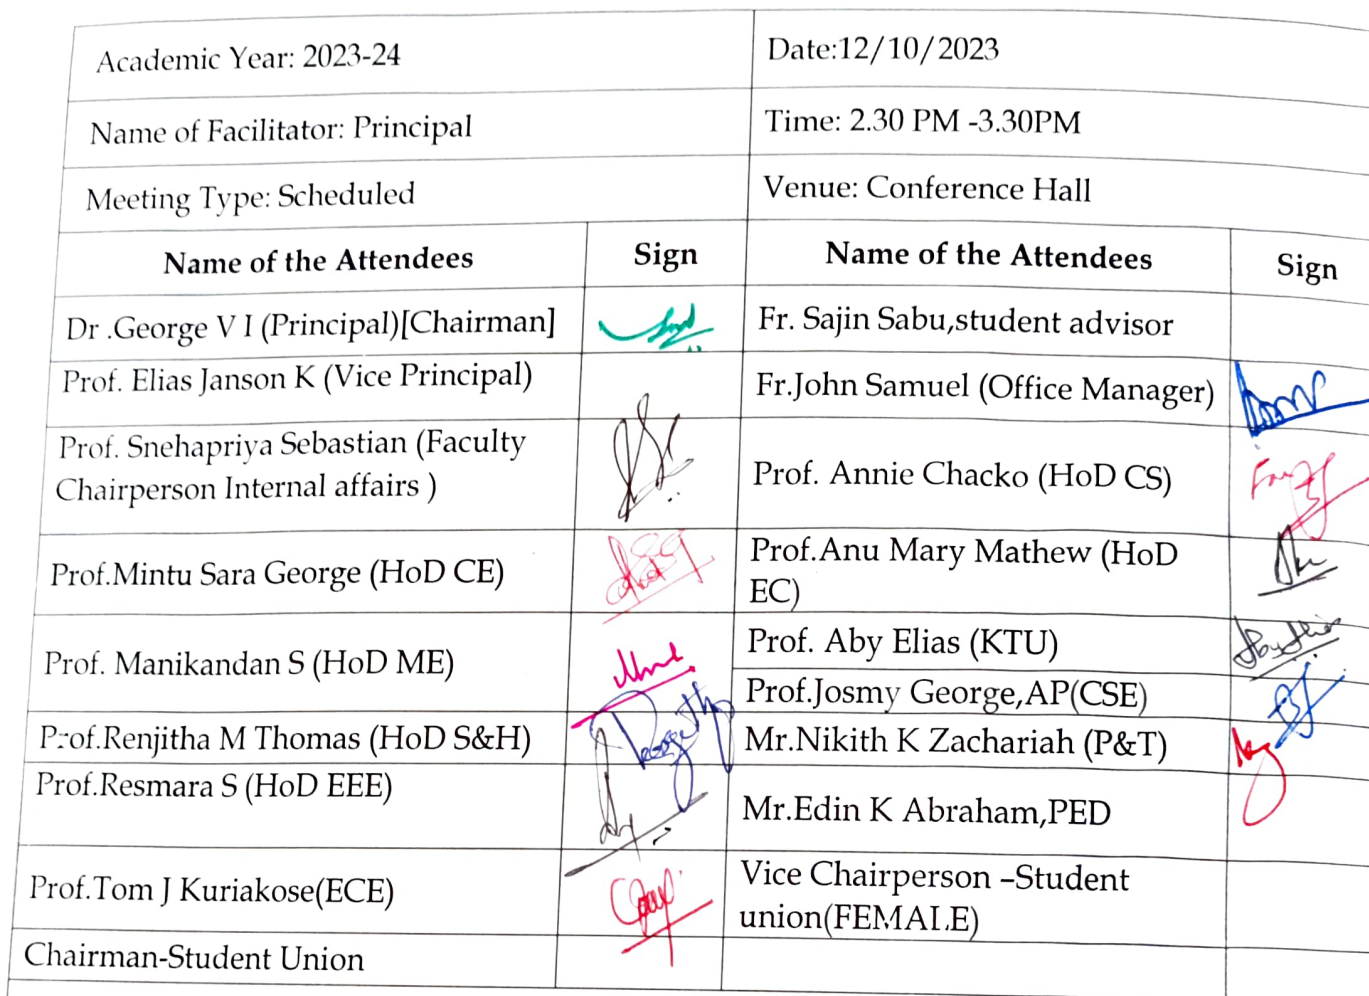 Academic Year: 2023-24
Date:12/10/2023
Name of Facilitator: Principal
Time: 2.30 PM -3.30PM
Meeting Type: Scheduled
Venue: Conference Hall
Name of the Attendees
Sign
Name of the Attendees
Sign
Dr .George V I (Principal)[Chairman]
Fr. Sajin Sabu,student advisor
Prof. Elias Janson K (Vice Principal)
Fr.John Samuel (Office Manager)
Prof. Snehapriya Sebastian (Faculty
Chairperson Internal affairs )
Prof. Annie Chacko (HoD CS)
Prof.Mintu Sara George (HoD CE)
Prof.Anu Mary Mathew (HoD
EC)
Prof. Manikandan S (HoD ME)
Prof. Aby Elias (KTU)
Prof.Josmy George,AP(CSE)
Prof.Renjitha M Thomas (HoD S&H)
Mr.Nikith K Zachariah (P&T)
Prof.Resmara S (HoD EEE)
Mr.Edin K Abraham,PED
Prof.Tom J Kuriakose(ECE)
Vice Chairperson –Student
union(FEMALE)
Chairman-Student Union